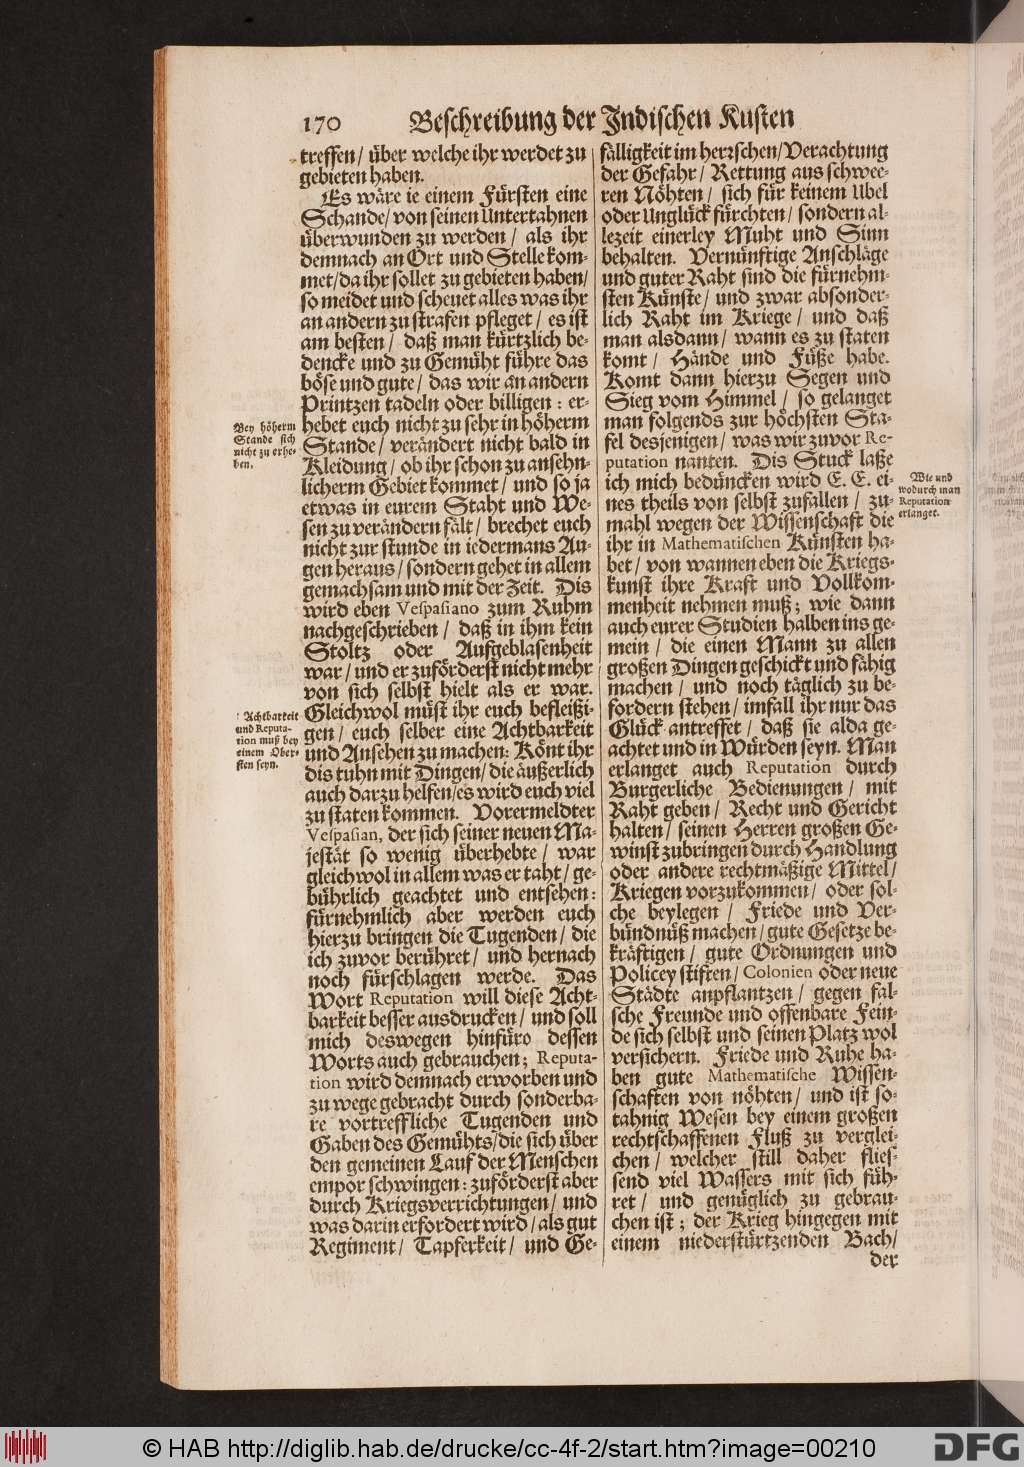 170 Beschreibung der Indischen Kusten
treffen/ über welche ihr werdet zu
gebieten haben.
Es wäre ie einem Fürsten eine
Schande/ von seinen Untertahnen
überwunden zu werden/ als ihr
demnach an Ort und Stelle kom-
met/ da ihr sollet zu gebieten haben/
so meidet und scheuet alles was ihr
an andern zu strafen pfleget/ es ist
am besten/ daß man kürtzlich be-
dencke und zu Gemüht führe das
böse und gute/ das wir an andern
Printzen tadeln oder billigen: er-
hebet euch nicht zu sehr in höherm
Stande/ verändert nicht bald in
Kleidung/ ob ihr schon zu ansehn-
licherm Gebiet kommet/ und so ja
etwas in eurem Staht und We-
sen zu verändern fält/ brechet euch
nicht zur stunde in iedermans Au-
gen heraus/ sondern gehet in allem
gemachsam und mit der Zeit. Dis
wird eben Vespasiano zum Ruhm
nachgeschrieben/ daß in ihm kein
Stoltz oder Aufgeblasenheit
war/ und er zuförderst nicht mehr
von sich selbst hielt als er war.
Gleichwol müst ihr euch befleißi-
gen/ euch selber eine Achtbarkeit
und Ansehen zu machen: Könt ihr
dis tuhn mit Dingen/ die äußerlich
auch darzu helfen/ es wird euch viel
zu staten kommen. Vorermeldter
Vespasian, der sich seiner neuen Ma-
jestät so wenig überhebte/ war
gleichwol in allem was er taht/ ge-
bührlich geachtet und entsehen:
fürnehmlich aber werden euch
hierzu bringen die Tugenden/ die
ich zuvor berühret/ und hernach
noch fürschlagen werde. Das
Wort Reputation will diese Acht-
barkeit besser ausdrucken/ und soll
mich deswegen hinfüro dessen
Worts auch gebrauchen; Reputa-
tion wird demnach erworben und
zu wege gebracht durch sonderba-
re vortreffliche Tugenden und
Gaben des Gemühts/ die sich über
den gemeinen Lauf der Menschen
empor schwingen: zuförderst aber
durch Kriegsverrichtungen/ und
was darin erfordert wird/ als gut
Regiment/ Tapferkeit/ und Ge-
Bey höherm
Stande sich
nicht zu erhe-
ben.
Achtbarkeit
und Reputa-
tion muß bey
einem Ober-
sten seyn.
fälligkeit im herrschen/ Verachtung
der Gefahr/ Rettung aus schwee-
ren Nöhten/ sich für keinem Ubel
oder Unglück fürchten/ sondern al-
lezeit einerley Muht und Sinn
behalten. Vernünftige Anschläge
und guter Raht sind die fürnehm-
sten Künste/ und zwar absonder-
lich Raht im Kriege/ und daß
man alsdann/ wann es zu staten
komt/ Hände und Füße habe.
Komt dann hierzu Segen und
Sieg vom Himmel/ so gelanget
man folgends zur höchsten Sta-
fel desjenigen/ was wir zuvor Re-
putation nanten. Dis Stuck laße
ich mich bedüncken wird E. E. ei-
nes theils von selbst zufallen/ zu-
mahl wegen der Wissenschaft die
ihr in Mathematischen Künsten ha-
bet/ von wannen eben die Kriegs-
kunst ihre Kraft und Vollkom-
menheit nehmen muß; wie dann
auch eurer Studien halben ins ge-
mein/ die einen Mann zu allen
großen Dingen geschickt und fähig
machen/ und noch täglich zu be-
fordern stehen/ imfall ihr nur das
Glück antreffet/ daß sie alda ge-
achtet und in Würden seyn. Man
erlanget auch Reputation durch
Burgerliche Bedienungen/ mit
Raht geben/ Recht und Gericht
halten/ seinen Herren großen Ge-
winst zubringen durch Handlung
oder andere rechtmäßige Mittel/
Kriegen vorzukommen/ oder sol-
che beylegen/ Friede und Ver-
bündnüß machen/ gute Gesetze be-
kräftigen/ gute Ordnungen und
Policey stiften/ Colonien oder neue
Städte anpflantzen/ gegen fal-
sche Freunde und offenbare Fein-
de sich selbst und seinen Platz wol
versichern. Friede und Ruhe ha-
ben gute Mathematische Wissen-
schaften von nöhten/ und ist so-
tahnig Wesen bey einem großen
rechtschaffenen Fluß zu verglei-
chen/ welcher still daher flies-
send viel Wassers mit sich füh-
ret/ und genüglich zu gebrau-
chen ist; der Krieg hingegen mit
einem niederstürtzenden Bach/
der
Wie und
wodurch man
Reputation
erlanget.
© HAB http://diglib.hab.de/drucke/cc-4f-2/start.htm?image=00210
DFG